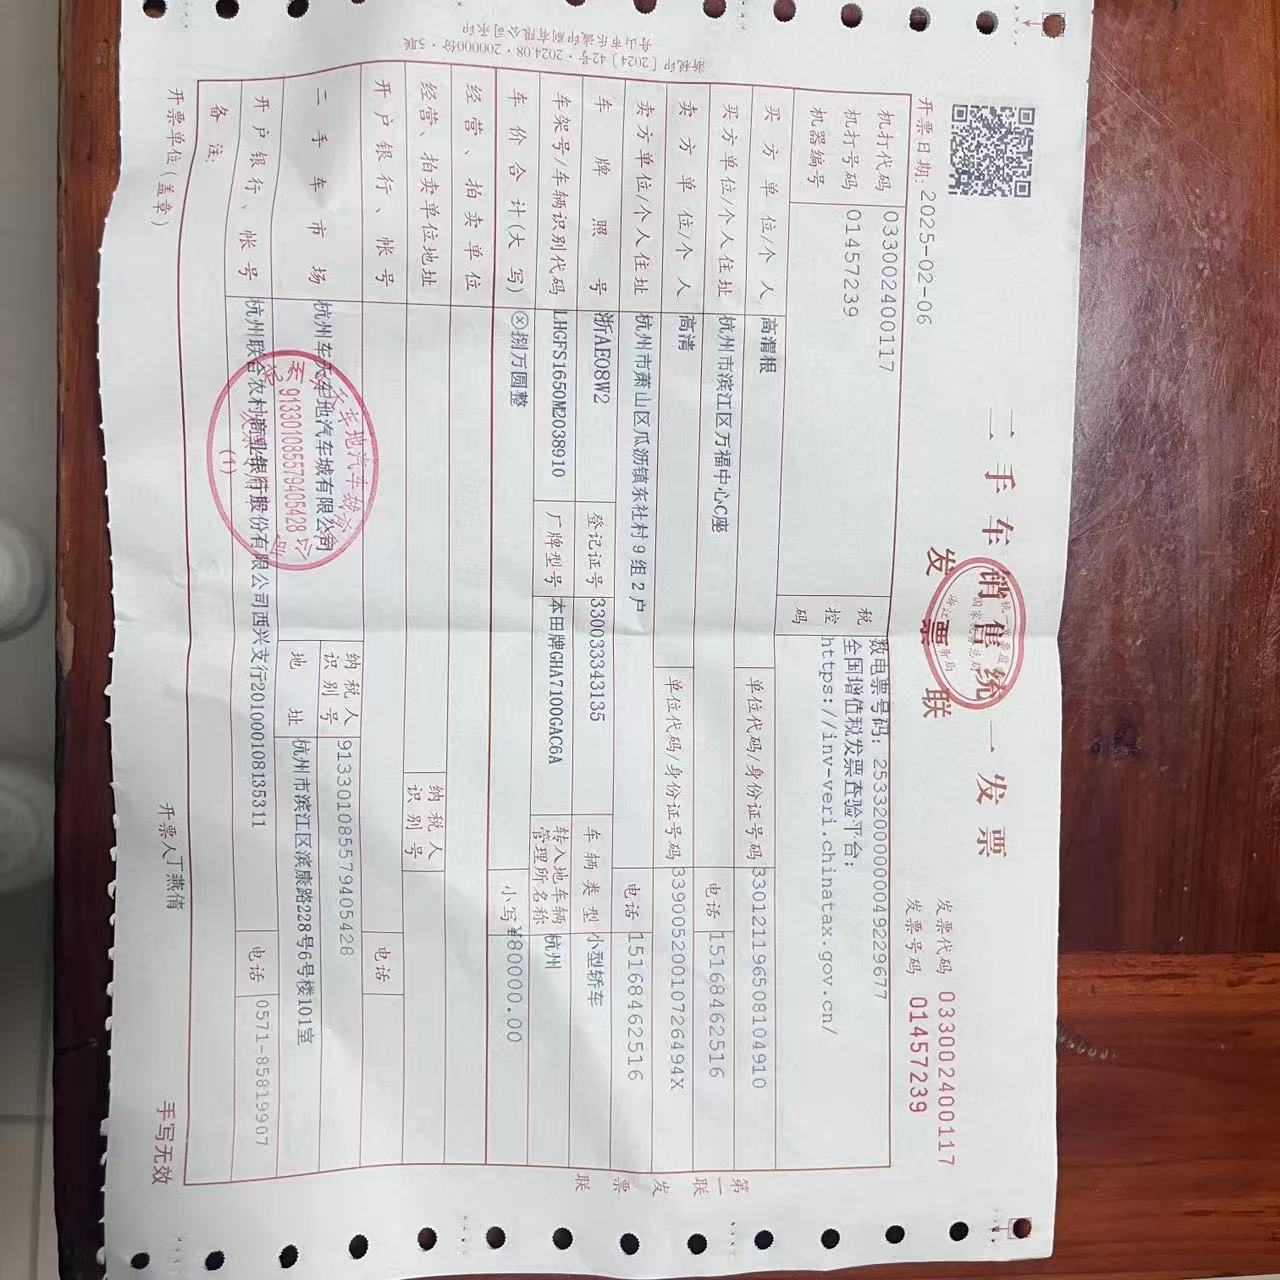 浙税印〔2024〕42号·2024.08·200000份·5联
舟山市乐诚印刷有限公司承印
二手车销售统一发票
发票联
发票代码 033002400117
发票号码 01457239
开票日期: 2025-02-06
机打代码 033002400117
机打号码 01457239
机器编号
税控码
数电票号码: 25332000000049229677
全国增值税发票查验平台:
https://inv-veri.chinatax.gov.cn/
买方单位/个人 高渭根 单位代码/身份证号码 330121196508104910
买方单位/个人住址 杭州市滨江区万福中心C座 电话 15168462516
卖方单位/个人 高清 单位代码/身份证号码 33900520010726494X
卖方单位/个人住址 杭州市萧山区瓜沥镇东社村9组2户 电话 15168462516
车牌照号 浙AE08W2 登记证号 330033343135 车辆类型 小型轿车
车架号/车辆识别代码 LHGFS1650M2038910 厂牌型号 本田牌GHA7100GAC6A 转入地车辆管理所名称 杭州
车价合计(大写) ⊗捌万圆整 小写 ¥80000.00
经营、拍卖单位
经营、拍卖单位地址 纳税人识别号
开户银行、帐号 电话
二手车市场 杭州车天车地汽车城有限公司 纳税人识别号 913301085579405428
地址 杭州市滨江区滨康路228号6号楼101室
开户银行、帐号 杭州联合农村商业银行股份有限公司西兴支行201000108135311 电话 0571-85819907
备注:
开票单位(盖章) 开票人 丁燕倩 手写无效
第一联 发票联
913301085579405428
(1)